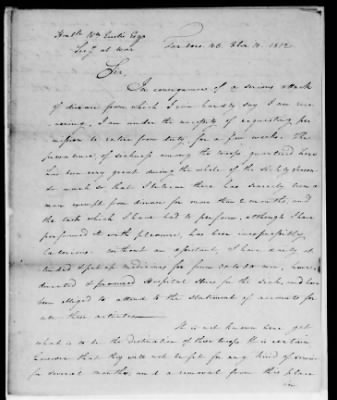 Honble Wm Eustis Esqr
Secy at War
Tarboro N.C. 10. 1812
Sir,
In consequence of a serious attack
of disease from which I am happy to say I am now
I am under the necessity of requesting per-
mission to retire from duty for a few weeks. The
prevalence of sickness among the troops quartered here
has been very great during the whole of the sickly season
so much so that I believe there has scarcely been a
man exempt from disease for more than 2 months, and
the task which I have had to perform, although I have
performed it with pleasure, has been
laborious. without an assistant, I have daily at
tended & put up medicines for from 20 to 30 men,
directed & procured Hospital stores for the sick, and have
been obliged to attend to the statement of accounts for
all these articles
It is not known here yet
what is to be the destination of these troops. It is certain
however that they will not be fit for any kind of service
for several months, and a removal from this place
in